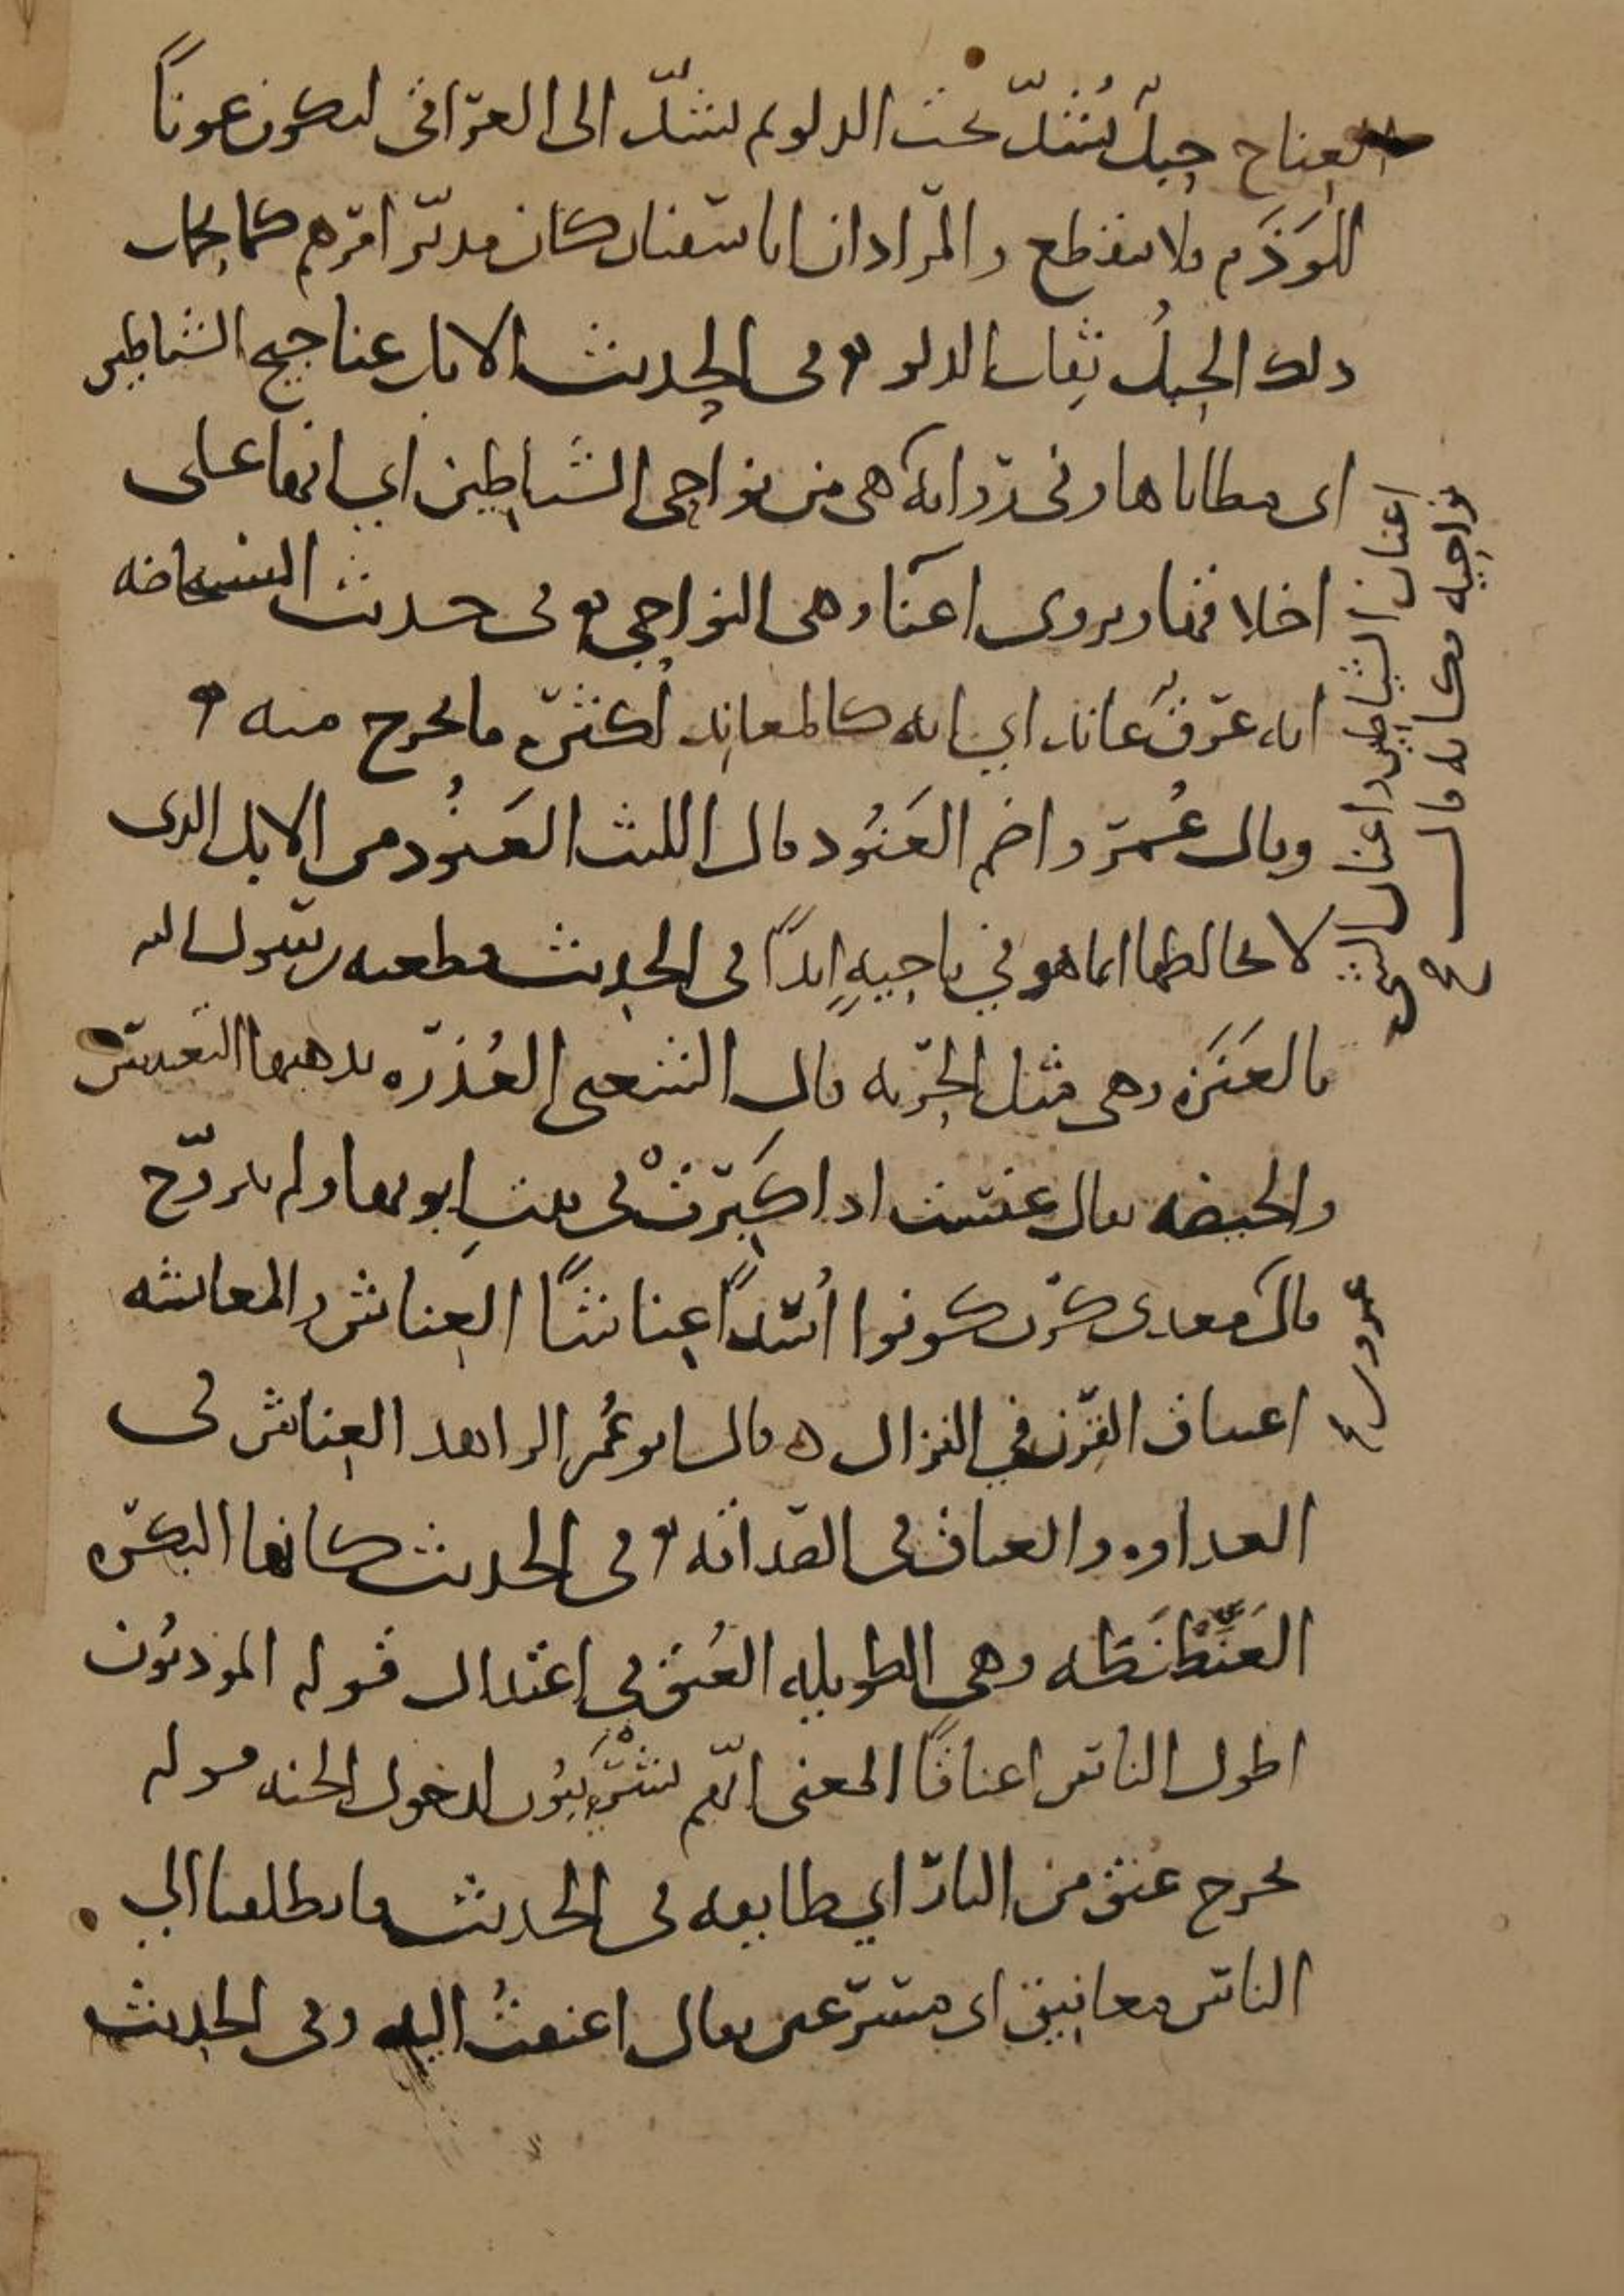 العناج حبل يُشدّ تحت الدلو ثم يشدّ الى العراقى ليكون عونًا
للوَذَم فلا ينقطع والمراد ان ابا سفيان كان مدبّر امرهم كما يحمل
ذلك الحبلُ ثِقل الدلو وفى الحديث الابل عناجيج الشياطين
اى مطاياها وفى رواية هى من نواحى الشياطين اي انها على
اخلاقها ويروى اعنان وهى النواحى وفى حديث المستحاضه
انه عرقٌ عاند اي انه كالمعاند لكثرة ما يخرج منه
وقال عُمر واضم العَنُود قال الليث العَنُود من الابل الذى
لا يخالطها انما هو في ناحيةٍ ابدًا فى الحديث فطعنه رسول الله
بالعَنَزه وهى مثل الحربه قال الشعبى العُذره يذهبها التعنيس
والحيضه يقال عنست اذا كَبِرَتْ فى بيت ابويها ولم تزوّج
قال معدى كرب كونوا أُسْدًا عِناشًا العِناش والمعانشه
اعتناق القِرن في النزال ه قال ابو عُمر الزاهد العِناش فى
العداوه والعناق فى الصداقه وفى الحديث كانها البكره
العَنَطْنَطه وهى الطويله العُنق في اعتدال قوله الموذنون
اطول الناس اعناقًا المعنى انهم يَشْرَئِبُّون لدخول الجنه قوله
يخرج عُنق من النار اي طايفه فى الحديث فانطلقنا الى
الناس معانيق اى مسرعين يقال اعنقتُ اليه وفى الحديث
اعنان الشياطين واعنان الشى
نواحيه فكانه قال
عمرو بن